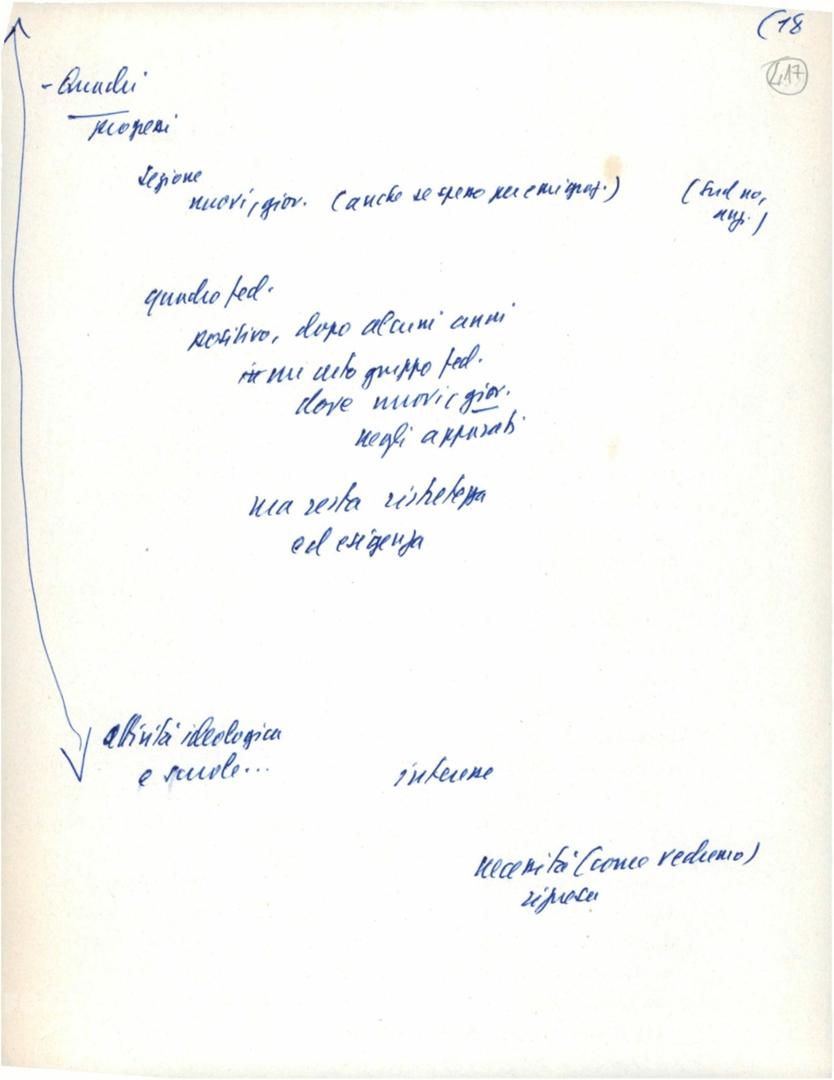 (18
417
- Quadri
progressi
sezione
nuovi, giov. (anche se spesso per emigraz.) (Sud no, anz.)
quadro fed.
positivo, dopo alcuni anni
in un certo gruppo fed.
dove nuovi e giov.
negli apparati
ma resta ristretezza
ed esigenza
attività ideologica
e scuole... interesse
necessità (come vedremo)
ripresa